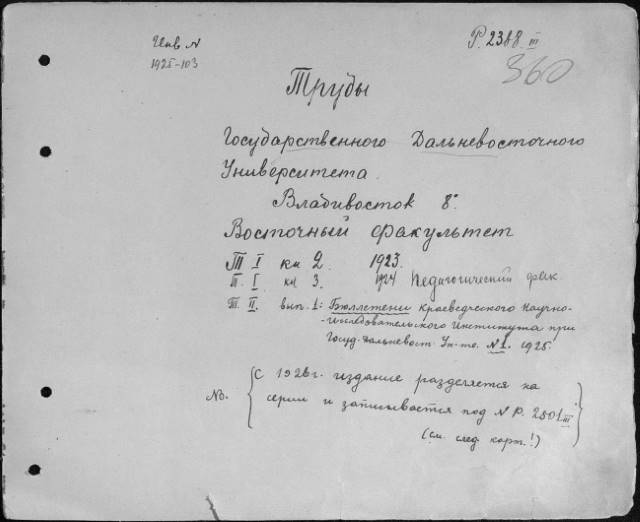 Инв N
1925-103
P. 2388 III
360
Труды
Государственного Дальневосточного
Университета.
Владивосток 8°.
Восточный факультет
Т I кн 2. 1923.
Т. I. кн 3. 1924 Педагогический фак.
Т. II. вып. 1: Бюллетени Краеведческого Научно-
-исследовательского Института при
Госуд. Дальневост. Ун-те. №1. 1925.
No. { С 1926г. издание разделяется на
серии и записывается под N P. 2801 III }
(см. след. карт.!)